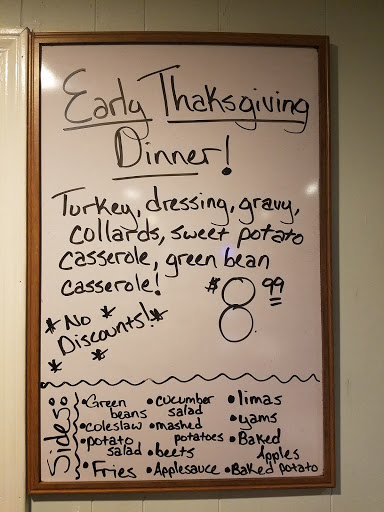 Early Thaksgiving
Dinner!
Turkey, dressing, gravy,
collards, sweet potato
casserole, green bean
casserole!
$8 99
*No *
Discounts!*
* *
Sides:
•Green beans
•coleslaw
•potato salad
•Fries
•cucumber salad
•mashed potatoes
•beets
•Applesauce
•limas
•yams
•Baked Apples
•Baked potato